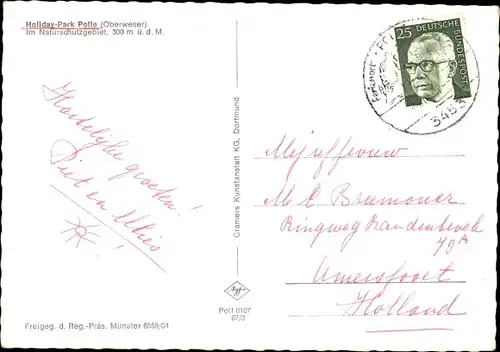 Holiday-Park Polle (Oberweser)
Im Naturschutzgebiet, 300 m ü. d. M.
Hartelijke groeten!
Piet en Mies!
Freigeg. d. Reg.-Präs. Münster 6559/64
Cramers Kunstanstalt KG, Dortmund
Poll 0107
67/3
25 DEUTSCHE BUNDESPOST
3453
Mejuffrouw
M E Brumoner
Ringweg Randenbroek
79A
Amersfoort
Holland